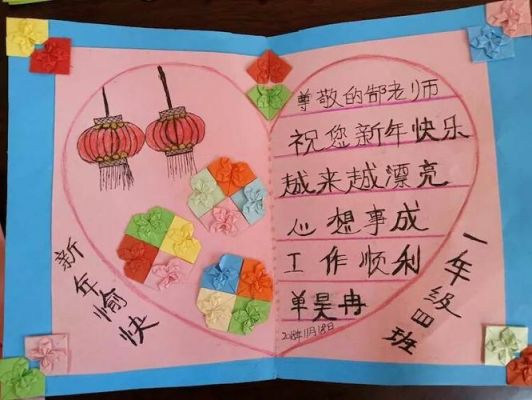 新年愉快
尊敬的郜老师
祝您新年快乐
越来越漂亮
心想事成
工作顺利
单昊冉
2018年11月18日
一年级四班